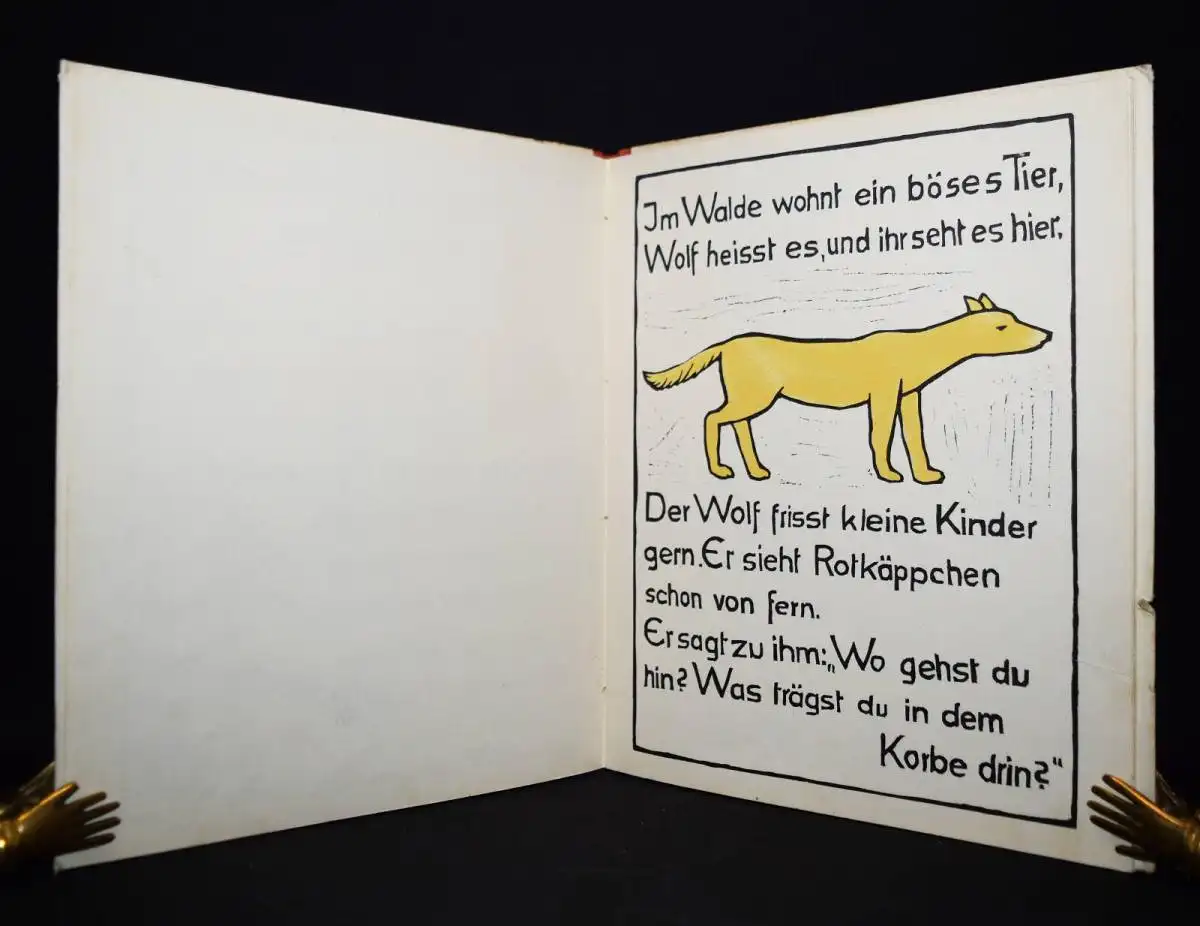 Im Walde wohnt ein böses Tier,
Wolf heisst es, und ihr seht es hier.
Der Wolf frisst kleine Kinder
gern. Er sieht Rotkäppchen
schon von fern.
Er sagt zu ihm: „Wo gehst du
hin? Was trägst du in dem
Korbe drin?“